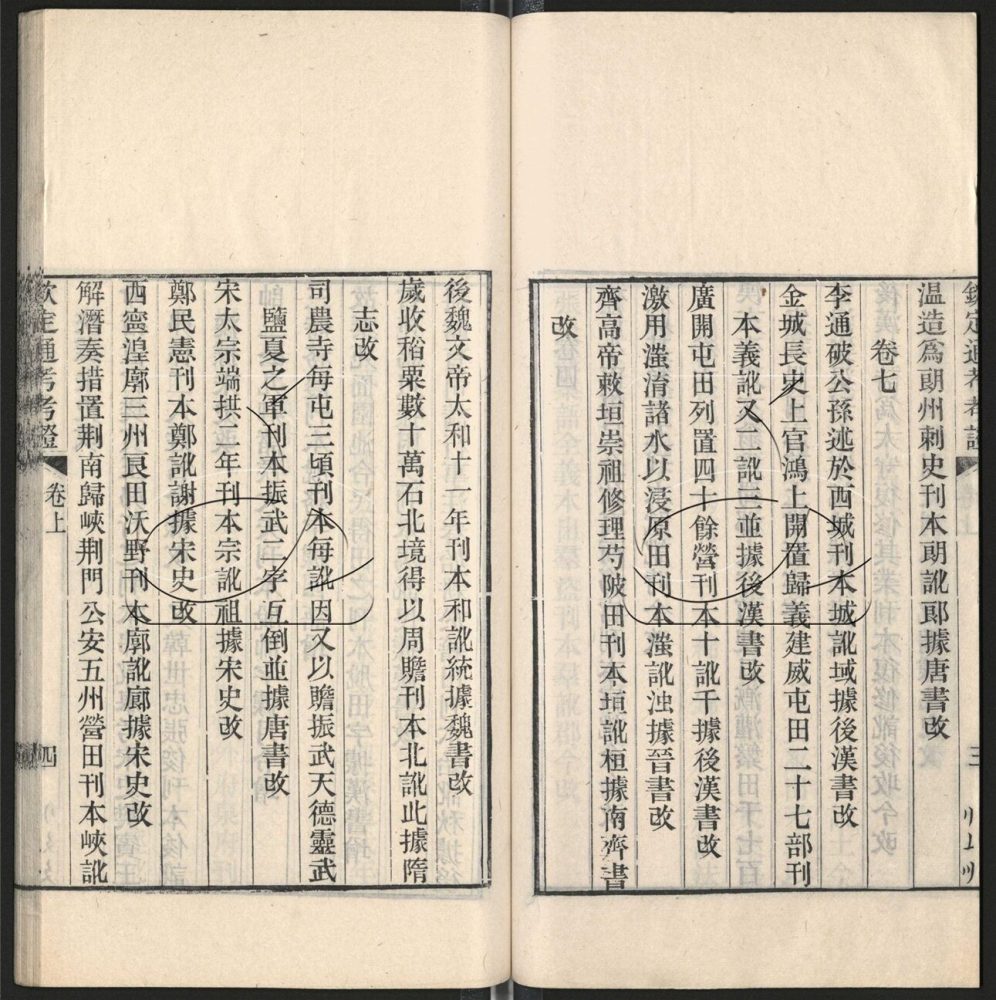 欽定通考考證
三
温造爲朗州刺史刊本朗訛郎據唐書改
卷七
李通破公孫述於西城刊本城訛域據後漢書改
金城長史上官鴻上開置歸義建威屯田二十七部刊
本義訛又二訛三並據後漢書改
廣開屯田列置四十餘營刊本十訛千據後漢書改
激用滍淯諸水以浸原田刊本滍訛浊據晉書改
齊高帝敕垣崇祖修理芍陂田刊本垣訛桓據南齊書
改
後魏文帝太和十二年刊本和訛統據魏書改
歲收稻粟數十萬石北境得以周贍刊本北訛此據隋
志改
司農寺每屯三頃刊本每訛因又以贍振武天德靈武
鹽夏之軍刊本振武二字互倒並據唐書改
宋太宗端拱二年刊本宗訛祖據宋史改
鄭民憲刊本鄭訛謝據宋史改
西寧湟廓三州良田沃野刊本廓訛廊據宋史改
解潛奏措置荆南歸峽荆門公安五州營田刊本峽訛
欽定通考考證
卷上
四